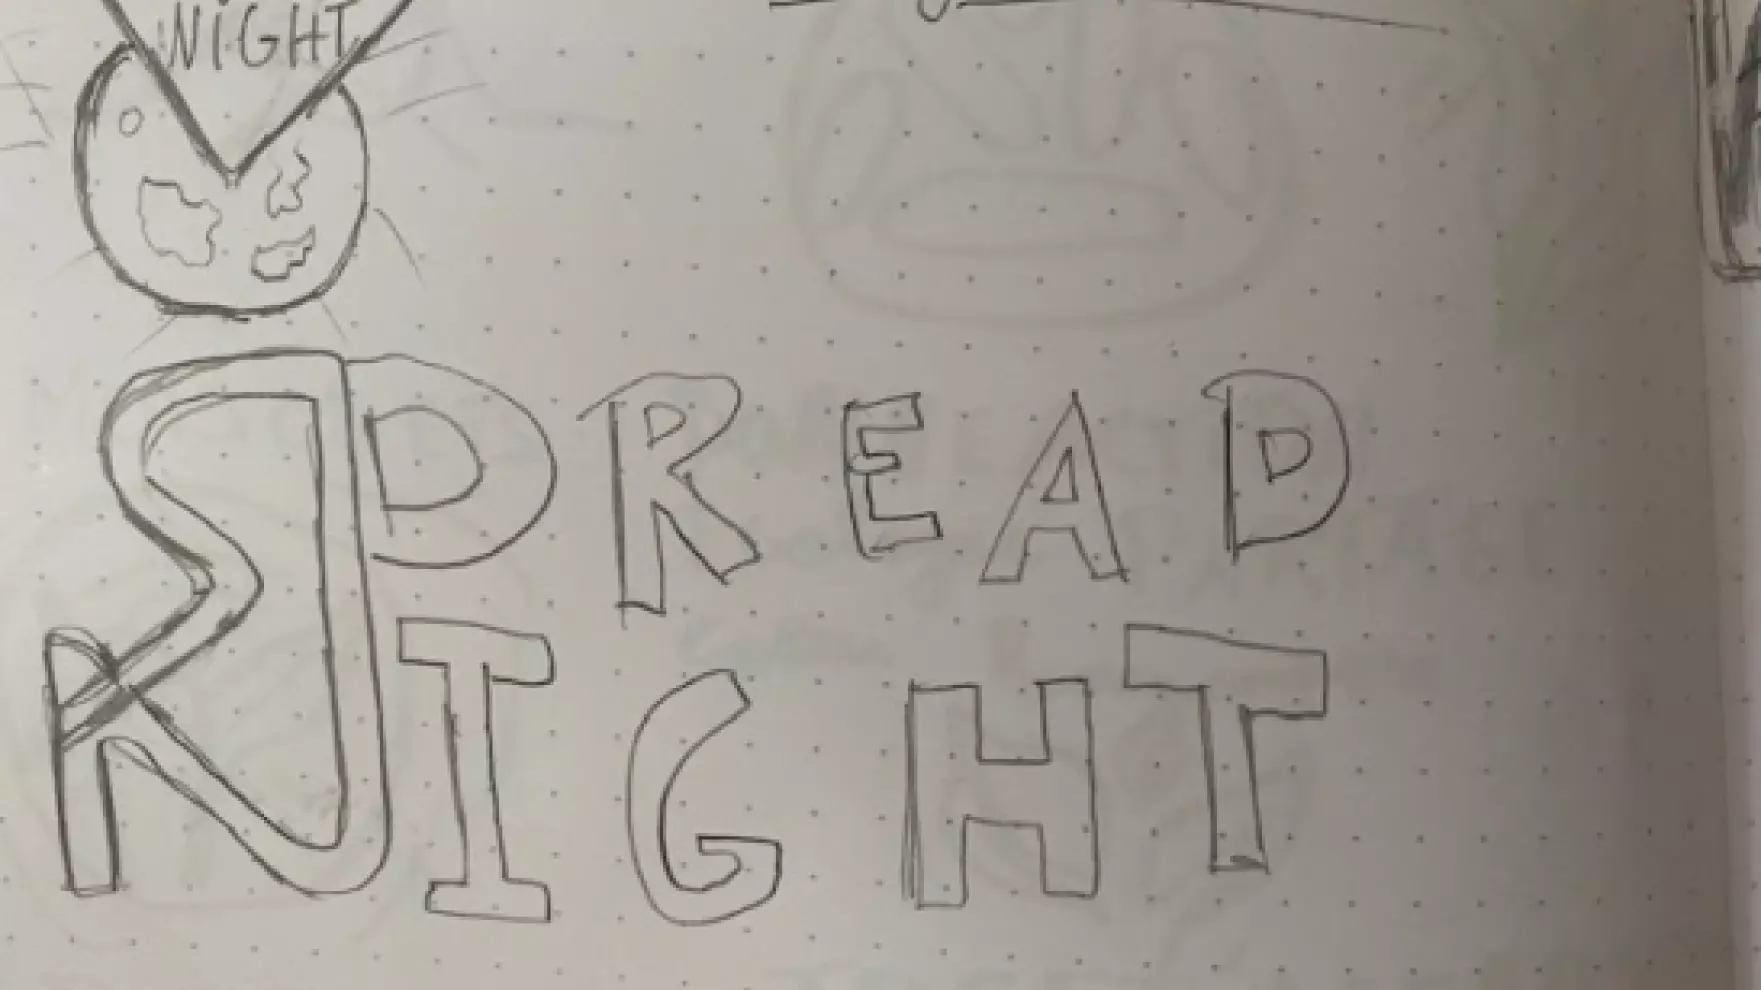 NIGHT
SPREAD
NIGHT